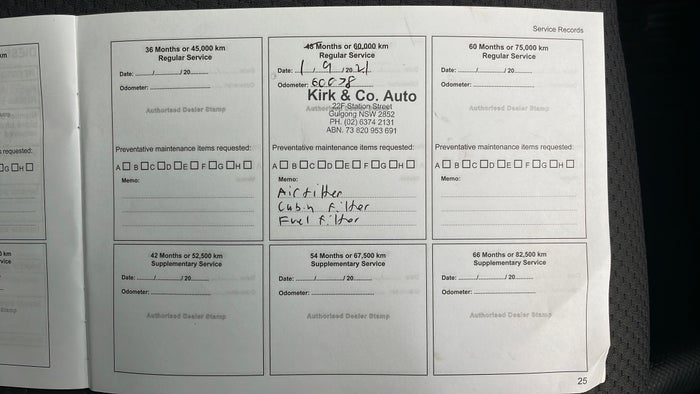 Service Records
36 Months or 45,000 km
Regular Service
Date: ....../....../20......
Odometer: ......
Authorised Dealer Stamp
Preventative maintenance items requested:
A☐ B☐ C☐ D☐ E☐ F☐ G☐ H☐
Memo:
48 Months or 60,000 km
Regular Service
Date: 1/9/2021
Odometer: 60078
Kirk & Co. Auto
22F Station Street
Gulgong NSW 2852
PH. (02) 6374 2131
ABN. 73 820 953 691
Preventative maintenance items requested:
A☐ B☐ C☐ D☐ E☐ F☐ G☐ H☐
Memo:
Air filter
Cabin filter
Fuel filter
60 Months or 75,000 km
Regular Service
Date: ....../....../20......
Odometer: ......
Authorised Dealer Stamp
Preventative maintenance items requested:
A☐ B☐ C☐ D☐ E☐ F☐ G☐ H☐
Memo:
42 Months or 52,500 km
Supplementary Service
Date: ....../....../20......
Odometer: ......
Authorised Dealer Stamp
54 Months or 67,500 km
Supplementary Service
Date: ....../....../20......
Odometer: ......
Authorised Dealer Stamp
66 Months or 82,500 km
Supplementary Service
Date: ....../....../20......
Odometer: ......
Authorised Dealer Stamp
25
km
requested:
G☐ H☐
km